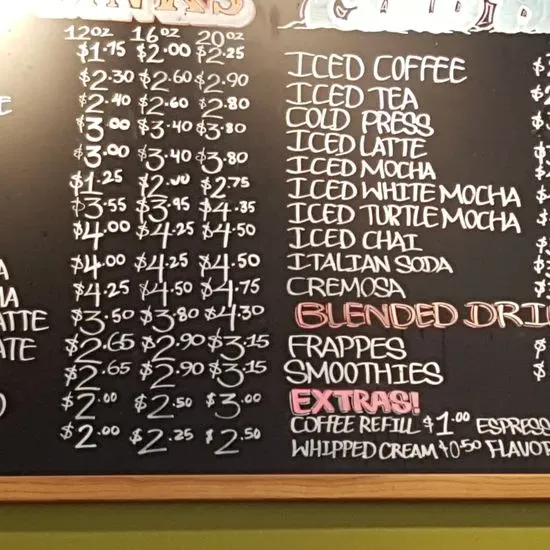 12oz 16oz 20oz
$1.75 $2.00 $2.25
$2.30 $2.60 $2.90
$2.40 $2.60 $2.80
$3.00 $3.40 $3.80
$3.00 $3.40 $3.80
$1.25 $2.00 $2.75
$3.55 $3.95 $4.35
$4.00 $4.25 $4.50
$4.00 $4.25 $4.50
$4.25 $4.50 $4.75
ATTE $3.50 $3.80 $4.30
ATE $2.65 $2.90 $3.15
$2.65 $2.90 $3.15
$2.00 $2.50 $3.00
$2.00 $2.25 $2.50
ICED COFFEE $
ICED TEA $
COLD PRESS $
ICED LATTE
ICED MOCHA
ICED WHITE MOCHA $
ICED TURTLE MOCHA $
ICED CHAI $
ITALIAN SODA
CREMOSA $
BLENDED DRI
FRAPPES $
SMOOTHIES $
EXTRAS!
COFFEE REFILL $1.00 ESPRESS
WHIPPED CREAM $0.50 FLAVOR